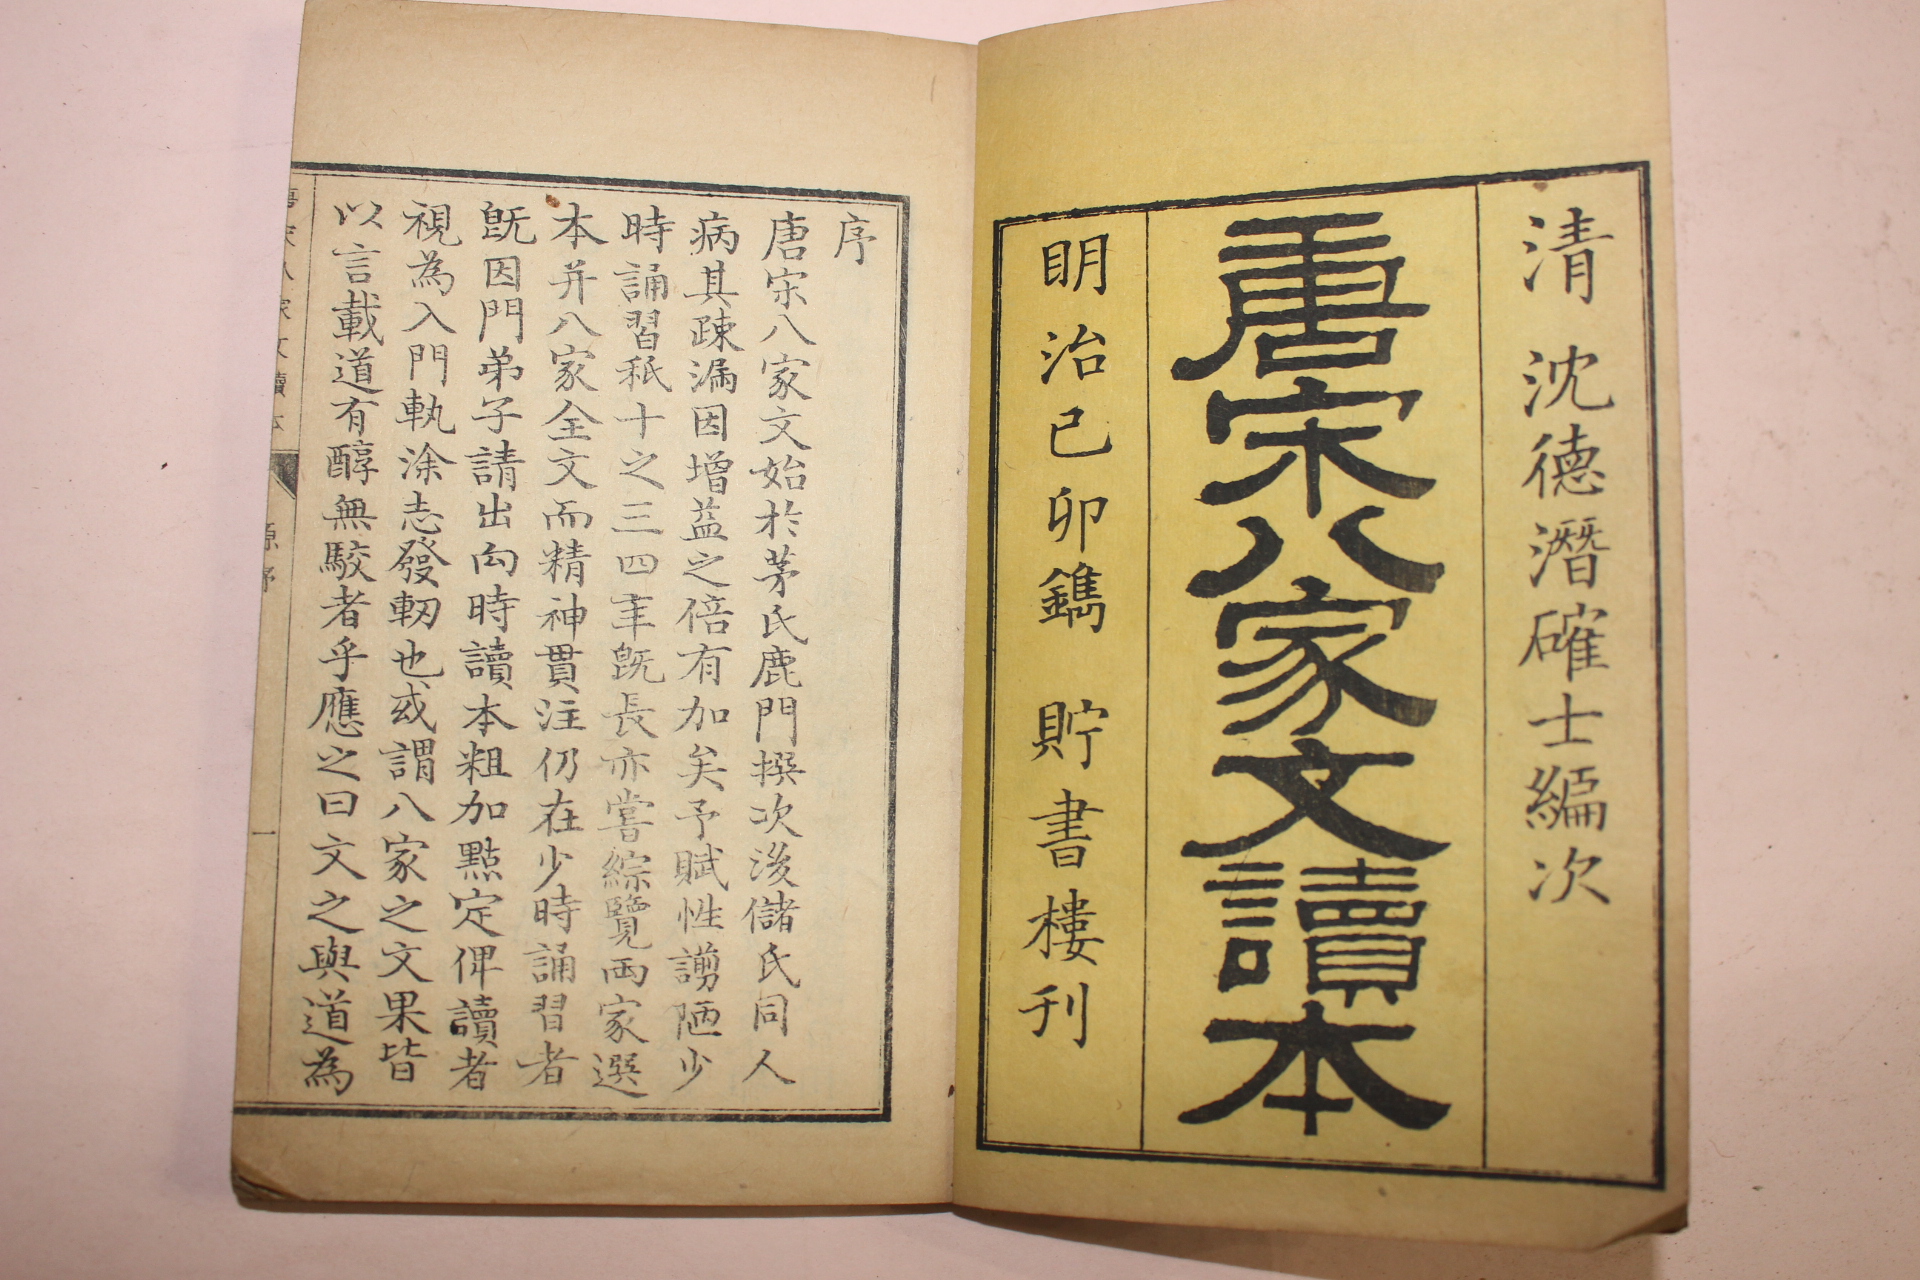 清 沈德潛確士編次
唐宋八家文讀本
明治己卯鐫 貯書樓刊
序
唐宋八家文始於茅氏鹿門撰次後儲氏同人
病其疎漏因增益之倍有加矣予賦性謭陋少
時誦習秖十之三四年旣長亦嘗綜覽兩家選
本并八家全文而精神貫注仍在少時誦習者
旣因門弟子請出向時讀本粗加點定俾讀者
視為入門軌涂志發軔也或謂八家之文果皆
以言載道有醇無駮者乎應之曰文之與道為
家文讀本 原序 一